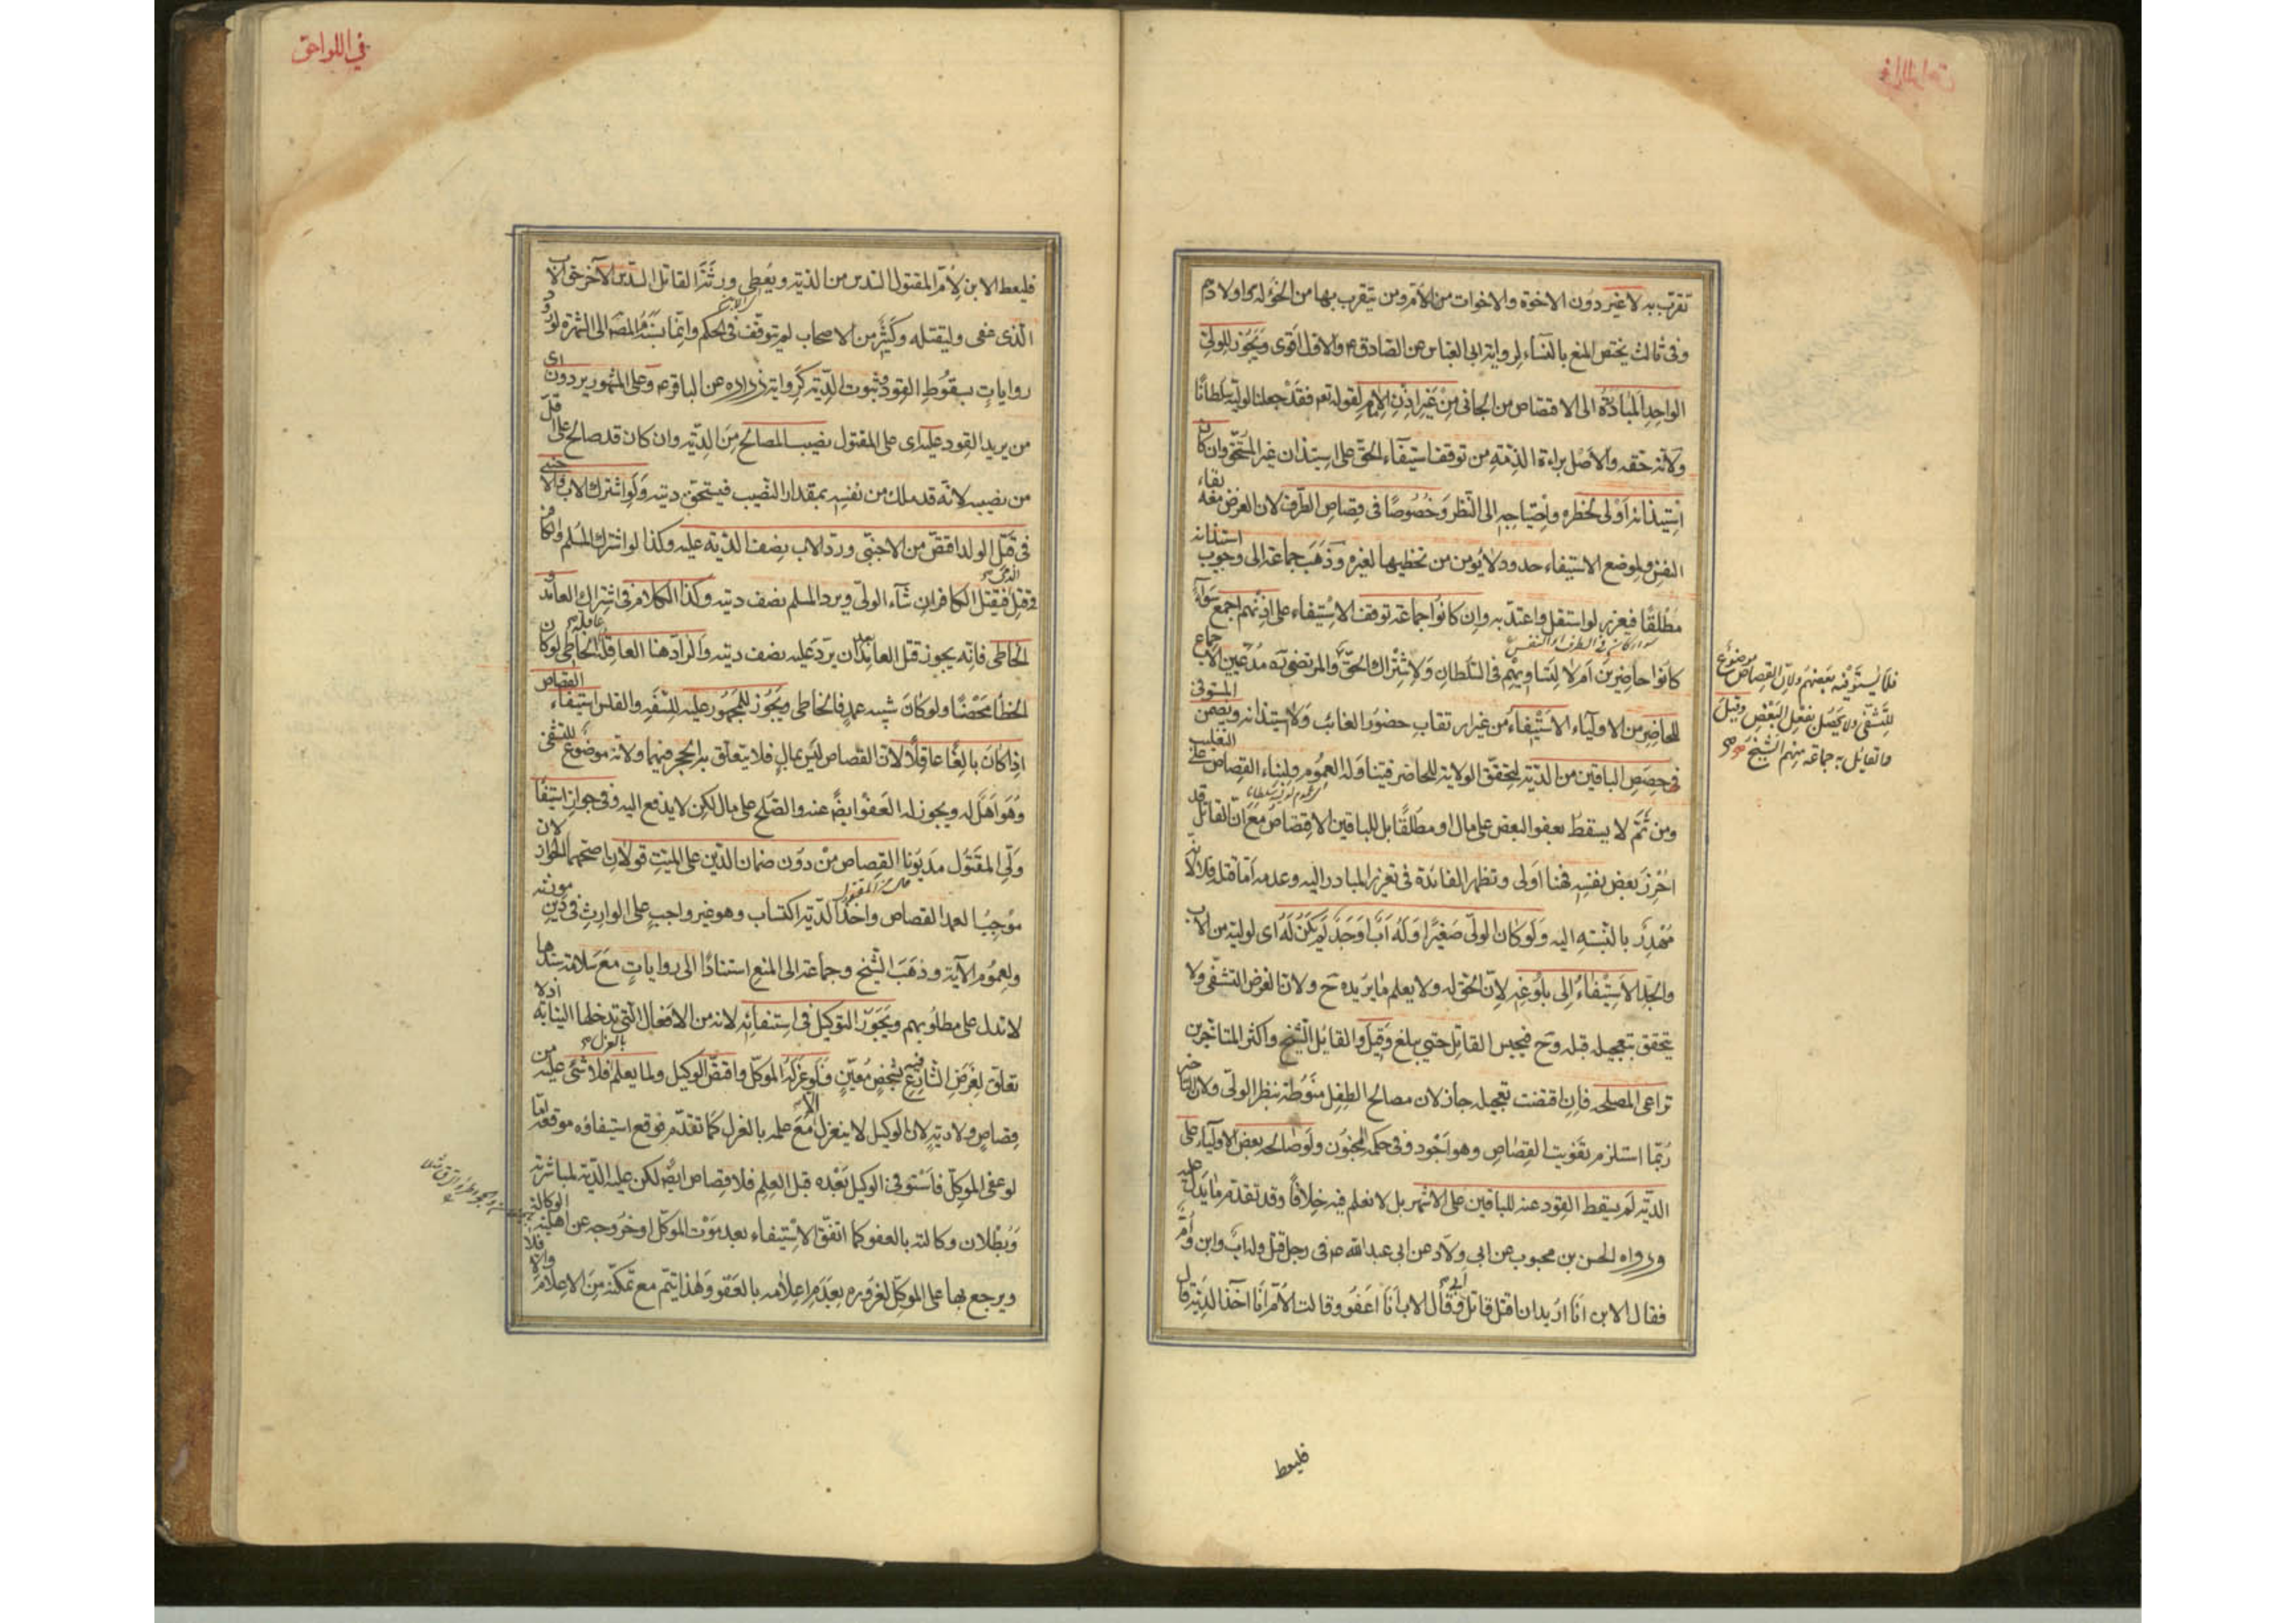 تقرب به لا غير دون الاخوة والاخوات من الأم ومن يتقرب بها من الخؤلة واولادهم
وفى ثالث يختص المنع بالنساء لرواية ابى العباس عن الصادق ع والاول اقوى ويجوز للولى
الواحد المبادرة الى الاقتصاص من الجانى من غير اذن الامام لقوله تع فقد جعلنا لوليه سلطانا
ولانه حقه والاصل براءة الذمة من توقف استيفاء الحق على استيذان غير المستحق وان كان
استيذانه اولى لخطره واحتياجه الى النظر وخصوصا فى قصاص الطرف لان الغرض معه بقاء
النفس ولموضع الاستيفاء حدود لا يؤمن من تخطيها لغيره وذهب جماعة الى وجوب استيذانه
مطلقا فيعزر لو استقل واعتد به وان كانوا جماعة توقف الاستيفاء على اذنهم اجمع سواء
كانوا حاضرين ام لا لتساويهم فى السلطان ولاشتراك الحق والمرتضى ره مدعيين الاجماع
للحاضر من الاولياء الاستيفاء من غير ارتقاب حضور الغائب ولا استيذانه ويضمن المستوفى
فى حصص الباقين من الدية لتحقق الولاية للحاضر فيتناوله العموم ولبناء القصاص على التغليب
ومن ثم لا يسقط بعفو البعض على مال او مطلقا بل للباقين الاقتصاص مع ان القاتل قد
احرز بعض نفسه فهنا اولى وتظهر الفائدة فى تعزير المبادر اليه وعدمه اما قتله فلا لانه
مهدر بالنسبة اليه ولو كان الولى صغيرا وله اب او جد لم يكن له اى لوليه من الاب
والجد الاستيفاء الى بلوغه لان الحق له ولا يعلم ما يريده ح ولان الغرض التشفى ولا
يتحقق بتعجيله قبله وح فيحبس القاتل حتى يبلغ وقيل والقائل الشيخ واكثر المتاخرين
تراعى المصلحة فان اقتضت تعجيله جاز لان مصالح الطفل منوطة بنظر الولى ولان التاخير
ربما استلزم تفويت القصاص وهو اجود وفى حكمه المجنون ولو صالحه بعض الاولياء على
الدية لم يسقط القود عنه للباقين على الاشهر بل لا نعلم فيه خلافا وقد تقدم ما يدل عليه
ورواه الحسن بن محبوب عن ابى ولاد عن ابى عبد الله ع فى رجل قتل وله اب وابن وأم
فقال الابن انا اريد ان اقتل قاتل ابى وقال الاب انا اعفو وقالت الأم انا آخذ الدية قال
فلا يستوفيه بعضهم ولان القصاص موضوع
للتشفى ولا يحصل بفعل البعض وقيل
والقائل به جماعة منهم الشيخ
فليعط
فى اللواحق
فليعط الابن لأم المقتول السدس من الدية ويعطى ورثة القاتل السدس الآخر حق الاب
الذى عفى وليقتله وكثير من الاصحاب لم يتوقف فى الحكم وانما نسبه المصـ الى الشهرة لورود
روايات بسقوط القود وثبوت الدية كرواية زرارة عن الباقر ع وعلى المشهور يردون اى
من يريد القود عليه اى على المقتول نصيب المصالح من الدية وان كان قد صالح على اقل
من نصيبه لانه قد ملك من نفسه بمقدار النصيب فيستحق ديته ولو اشترك الاب والاجنبى
فى قتل الولد اقتص من الاجنبى ورد الاب نصف الدية عليه وكذا لو اشترك المسلم والكافر
فى قتل الذمى فيقتل الكافر ان شاء الولى ويرد المسلم نصف ديته وكذا الكلام فى اشتراك العامد و
الخاطى فانه يجوز قتل العامد بعد ان يرد عليه نصف ديته والراد هنا العاقلة عاقلة الخاطى لو كان
الخطا محضا ولو كان شبيه عمد فالخاطى ويجوز للمحجور عليه للسفه والفلس استيفاء القصاص
اذا كان بالغا عاقلا لان القصاص ليس بمال فلا يتعلق به الحجر فيهما ولانه موضوع للتشفى
وهو اهل له ويجوز له العفو ايضا عنه والصلح على مال لكن لا يدفع اليه وفى جواز استيفاء
ولى المقتول مديونا القصاص من دون ضمان الدين على الميت قولان اصحهما الجواز لان
موجب العمد القصاص واخذ الدية اكتساب وهو غير واجب على الوارث فى دين مورثه
ولعموم الآية وذهب الشيخ وجماعة الى المنع استنادا الى روايات مع سلامة سندها
لا تدل على مطلوبهم ويجوز التوكيل فى استيفائه لانه من الافعال التى تدخلها النيابة اذ لا
تعلق لغرض الشارع فيه بشخص معين فلو عزله الموكل واقتص الوكيل ولما يعلم بالعزل فلا شئ عليه من
قصاص ولا دية لان الوكيل لا ينعزل الا مع علمه بالعزل كما تقدم فوقع استيفاؤه موقعه اما
لو عفى الموكل فاستوفى الوكيل بعده قبل العلم فلا قصاص ايضا لكن عليه الدية لمباشرته
وبطلان وكالته بالعفو كما اتفق الاستيفاء بعد موت الموكل او خروجه عن اهلية الوكالة
ويرجع بها على الموكل لغروره بعدم اعلامه بالعفو وهذا يتم مع تمكنه من الاعلام والا فلا